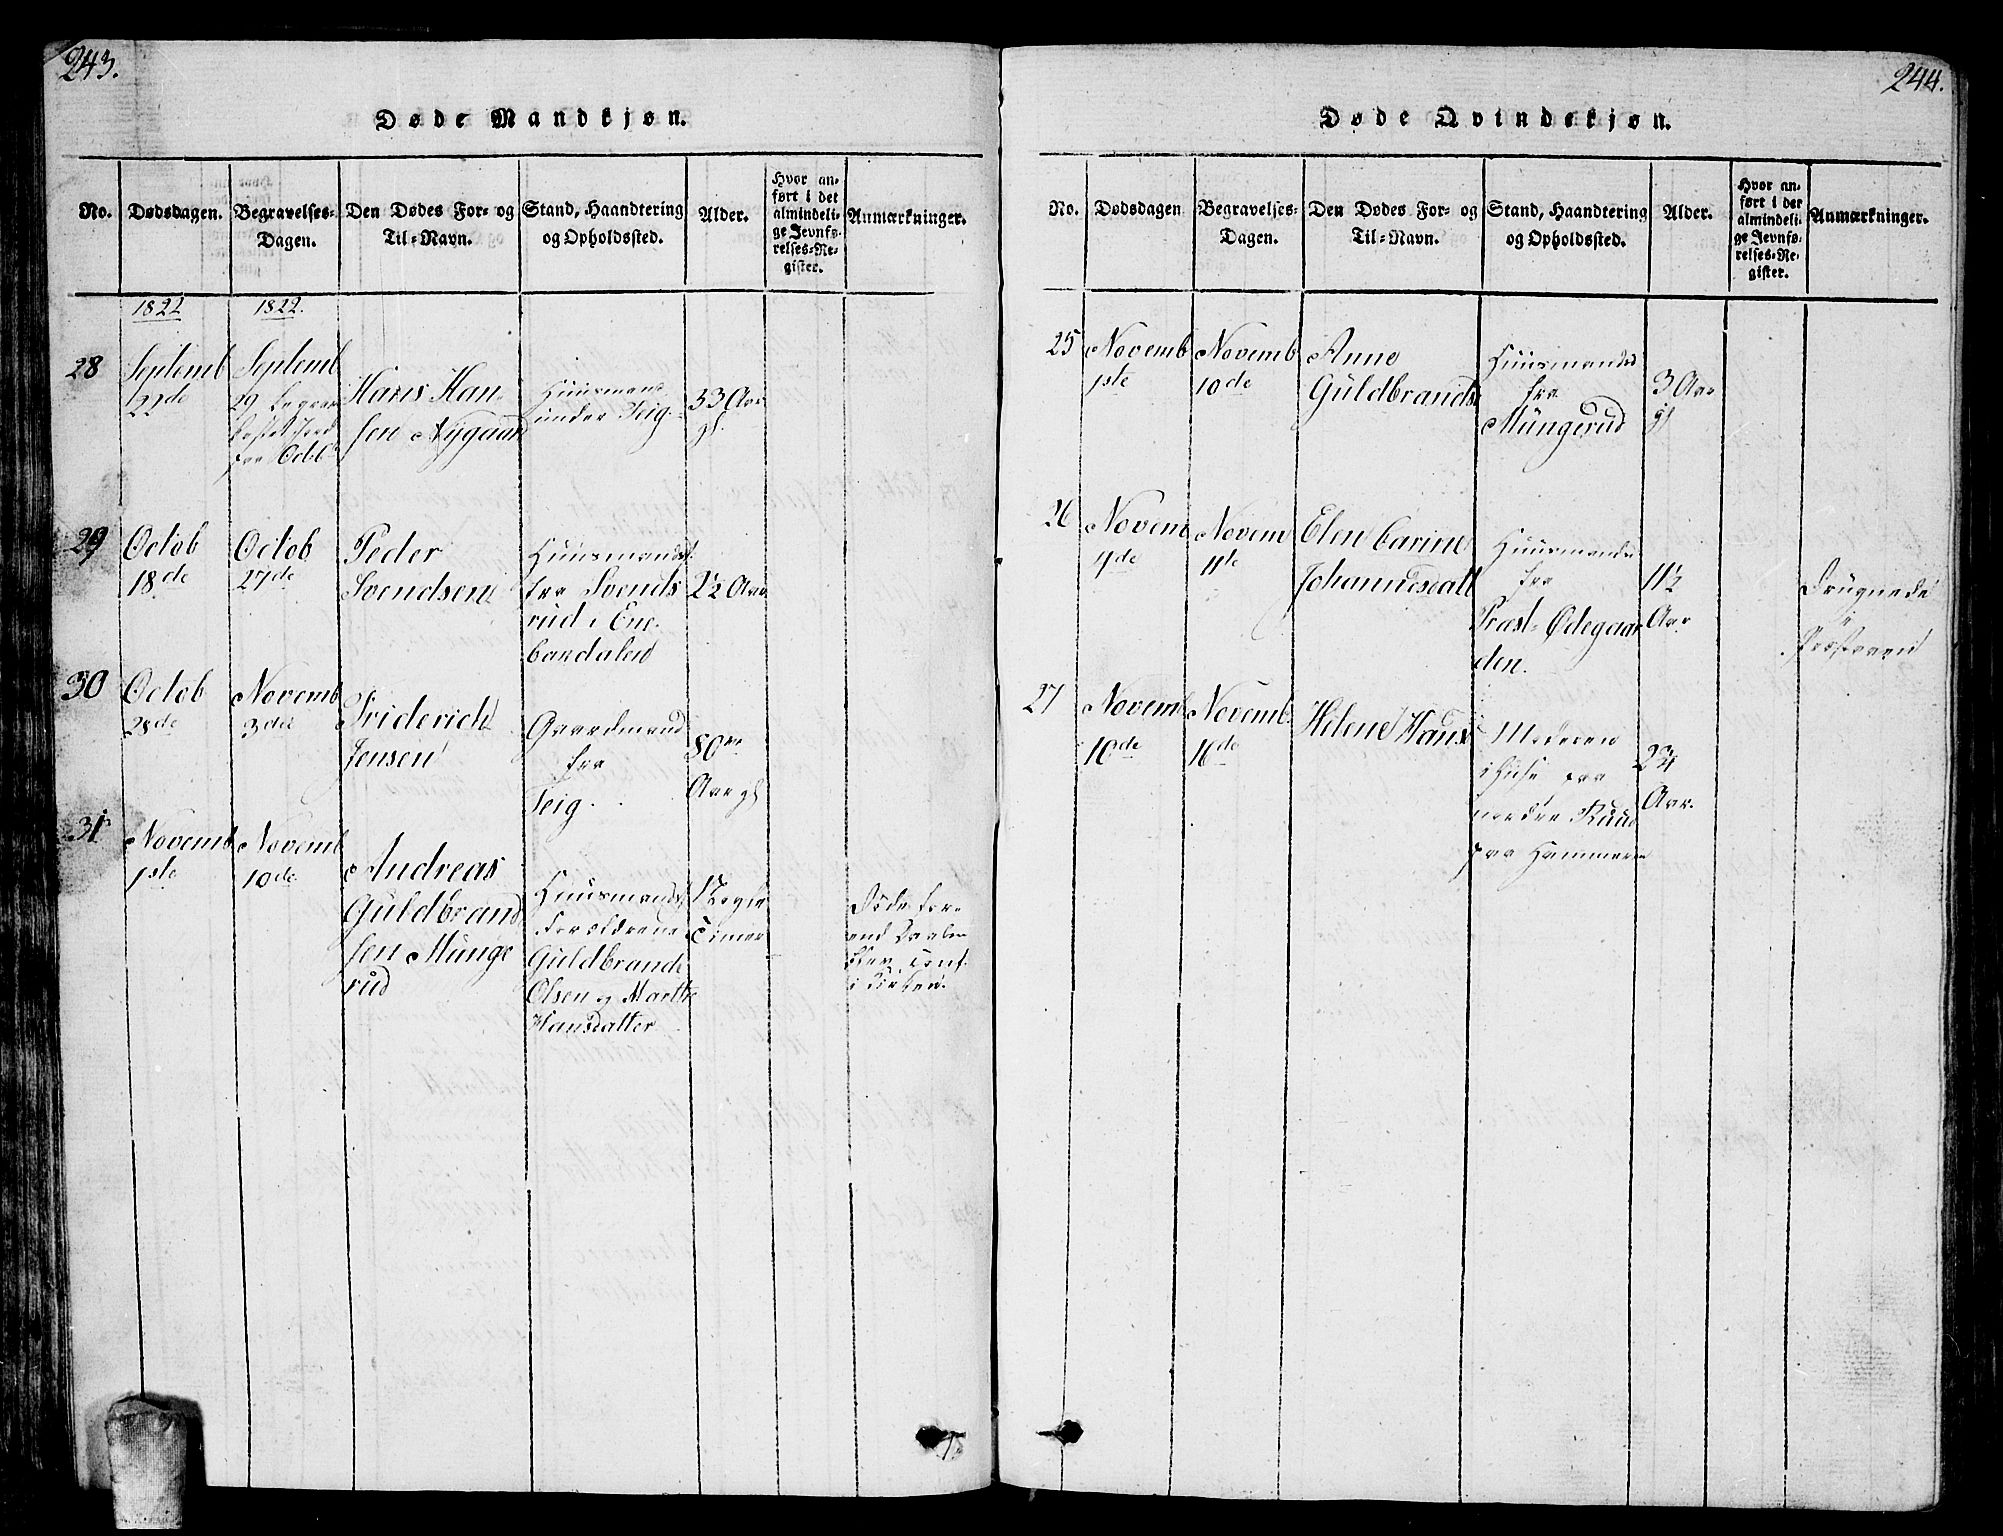 243.
Døde Mandkjøn.
No.
Dødsdagen.
Begravelses-
Dagen.
Den Dødes For- og
Til-Navn.
Stand, Haandtering
og Opholdssted.
Alder.
Hvor an-
ført i det
almindeli-
ge Jevnfø-
relses-Re-
gister.
Anmærkninger.
1822
1822.
28
Septemb
22de
Septemb
29
Hans Han-
sen Nygaard
Huusmand
under Teig
33 Aar
gl.
29
Octob
18de
Octob
27de
Peder
Svendsen
Huusmands
fra Svends
rud i Ene-
bakdalen
2½ Aar
30
Octob
28de
Novemb
3die
Friderich
Jensen
Gaardmand
fra
Teig.
80
Aar gl
31
Novemb
1ste
Novemb
10de
Andreas
Guldbrand
sen Münge
rud
Huusmands
Forældrene
Guldbrand
Olsen og Marthe
Hansdatter
Nogle
Timer
Døde for-
end Daaben
blev conf.
i Kirken.
244.
Døde Qvindekjøn.
No.
Dødsdagen
Begravelses-
Dagen.
Den Dødes For- og
Til-Navn.
Stand, Haandtering
og Opholdssted.
Alder.
Hvor an-
ført i det
almindeli-
ge Jevnfø-
relses-Re-
gister.
Anmærkninger.
25
Novemb
1ste
Novemb
10de
Anne
Guldbrands
Huusmands
fra
Müngerud
3 Aar
gl
26
Novem
4de
Novem
11te
Elen Carine
Johannesdatt
Huusmands
fra
Præst-Ødegaar
den.
11½
Aar
Druknede
i
Præstaaen
27
Novemb
10de
Novemb.
16de
Helene Hans
Moderen
i Huse paa
nordre Ruud
paa Hammeren
23¼
Aar.